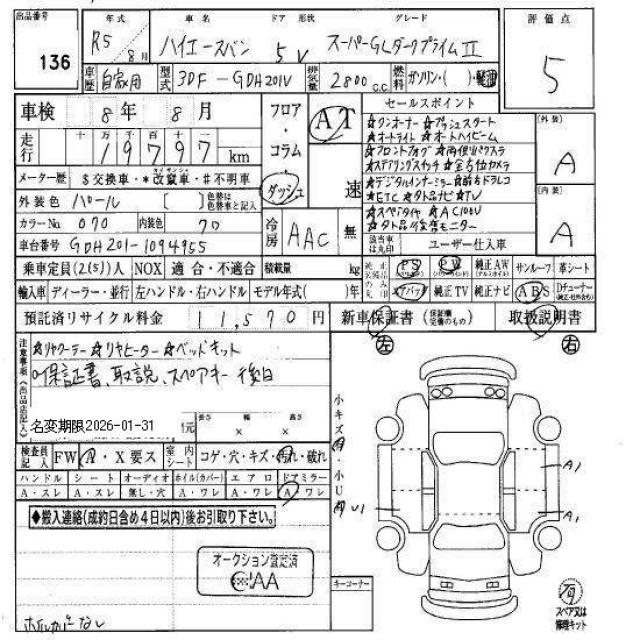 出品番号 136
年式 R5年 8月
車名 ハイエースバン
ドア 形状 5 V
グレード スーパーGLダークプライムⅡ
評価点 5
車歴 自家用
型式 3DF-GDH201V
排気量 2800 c.c.
燃料 ガソリン・( )・軽油
車検 8年 8月
走行 十万千百十 19797 km
メーター歴 $交換車・*改竄車・#不明車
外装色 パール [ ] 色替は色替車と記入
カラーNo 070 内装色 クロ
車台番号 GDH201-1094955
フロア・コラム・ダッシュ
AT 速
冷房 AAC 無
セールスポイント
☆ワンオーナー ☆プッシュスタート
☆オートライト ☆オートハイビーム
☆フロントフォグ ☆両側パワスラ
☆ステアリングスイッチ ☆全方位カメラ
☆デジタルインナーミラー ☆前后ドラレコ
☆ETC ☆夕ト品ナビ☆TV
☆スペアタイヤ ☆AC100V
該当車は丸印 ユーザー仕入車
(外装) A
(内装) A
乗車定員(2(5))人 NOX 適合・不適合 積載量 kg
純正装備品のみ丸印 PS PW 純正AW サンルーフ 革シート
輸入車 ディーラー・並行 左ハンドル・右ハンドル モデル年式( )年
エアバッグ 純正TV 純正ナビ ABS Dチューナー
預託済リサイクル料金 11,570円
新車保証書 (保証継承定着のもの) 取扱説明書
注意事項(出品店記入)
☆リヤクーラー ☆リヤヒーター ☆ベッドキット
○保証書、取説、スペアキー後日
名変期限2026-01-31
元 長さ × 幅 × 高さ
検査員記入 FW A・X要ス 室内シート コゲ・穴・キズ・汚れ・破れ
ハンドル シート オーディオ ホイル(カバー) エアロ ドアミラー
A・スレ A・スレ 無し・穴 A・ワレ A・ワレ A・ワレ
◆搬入連絡(成約日含め4日以内)後お引取り下さい。
オークション査定済
JAA
キーコーナー
左 右
小キズ 小U
U1
A1
A1
有
スペア又は修理キット